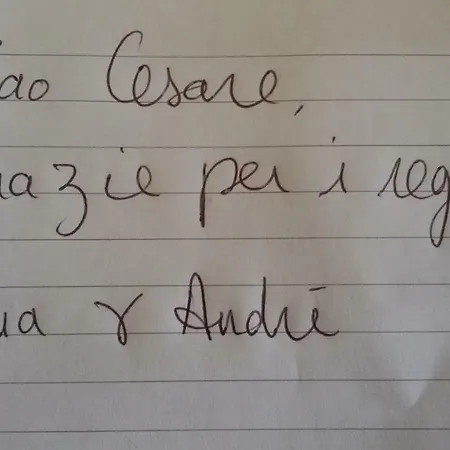 iao Cesare,
razie per i reg
ua r André